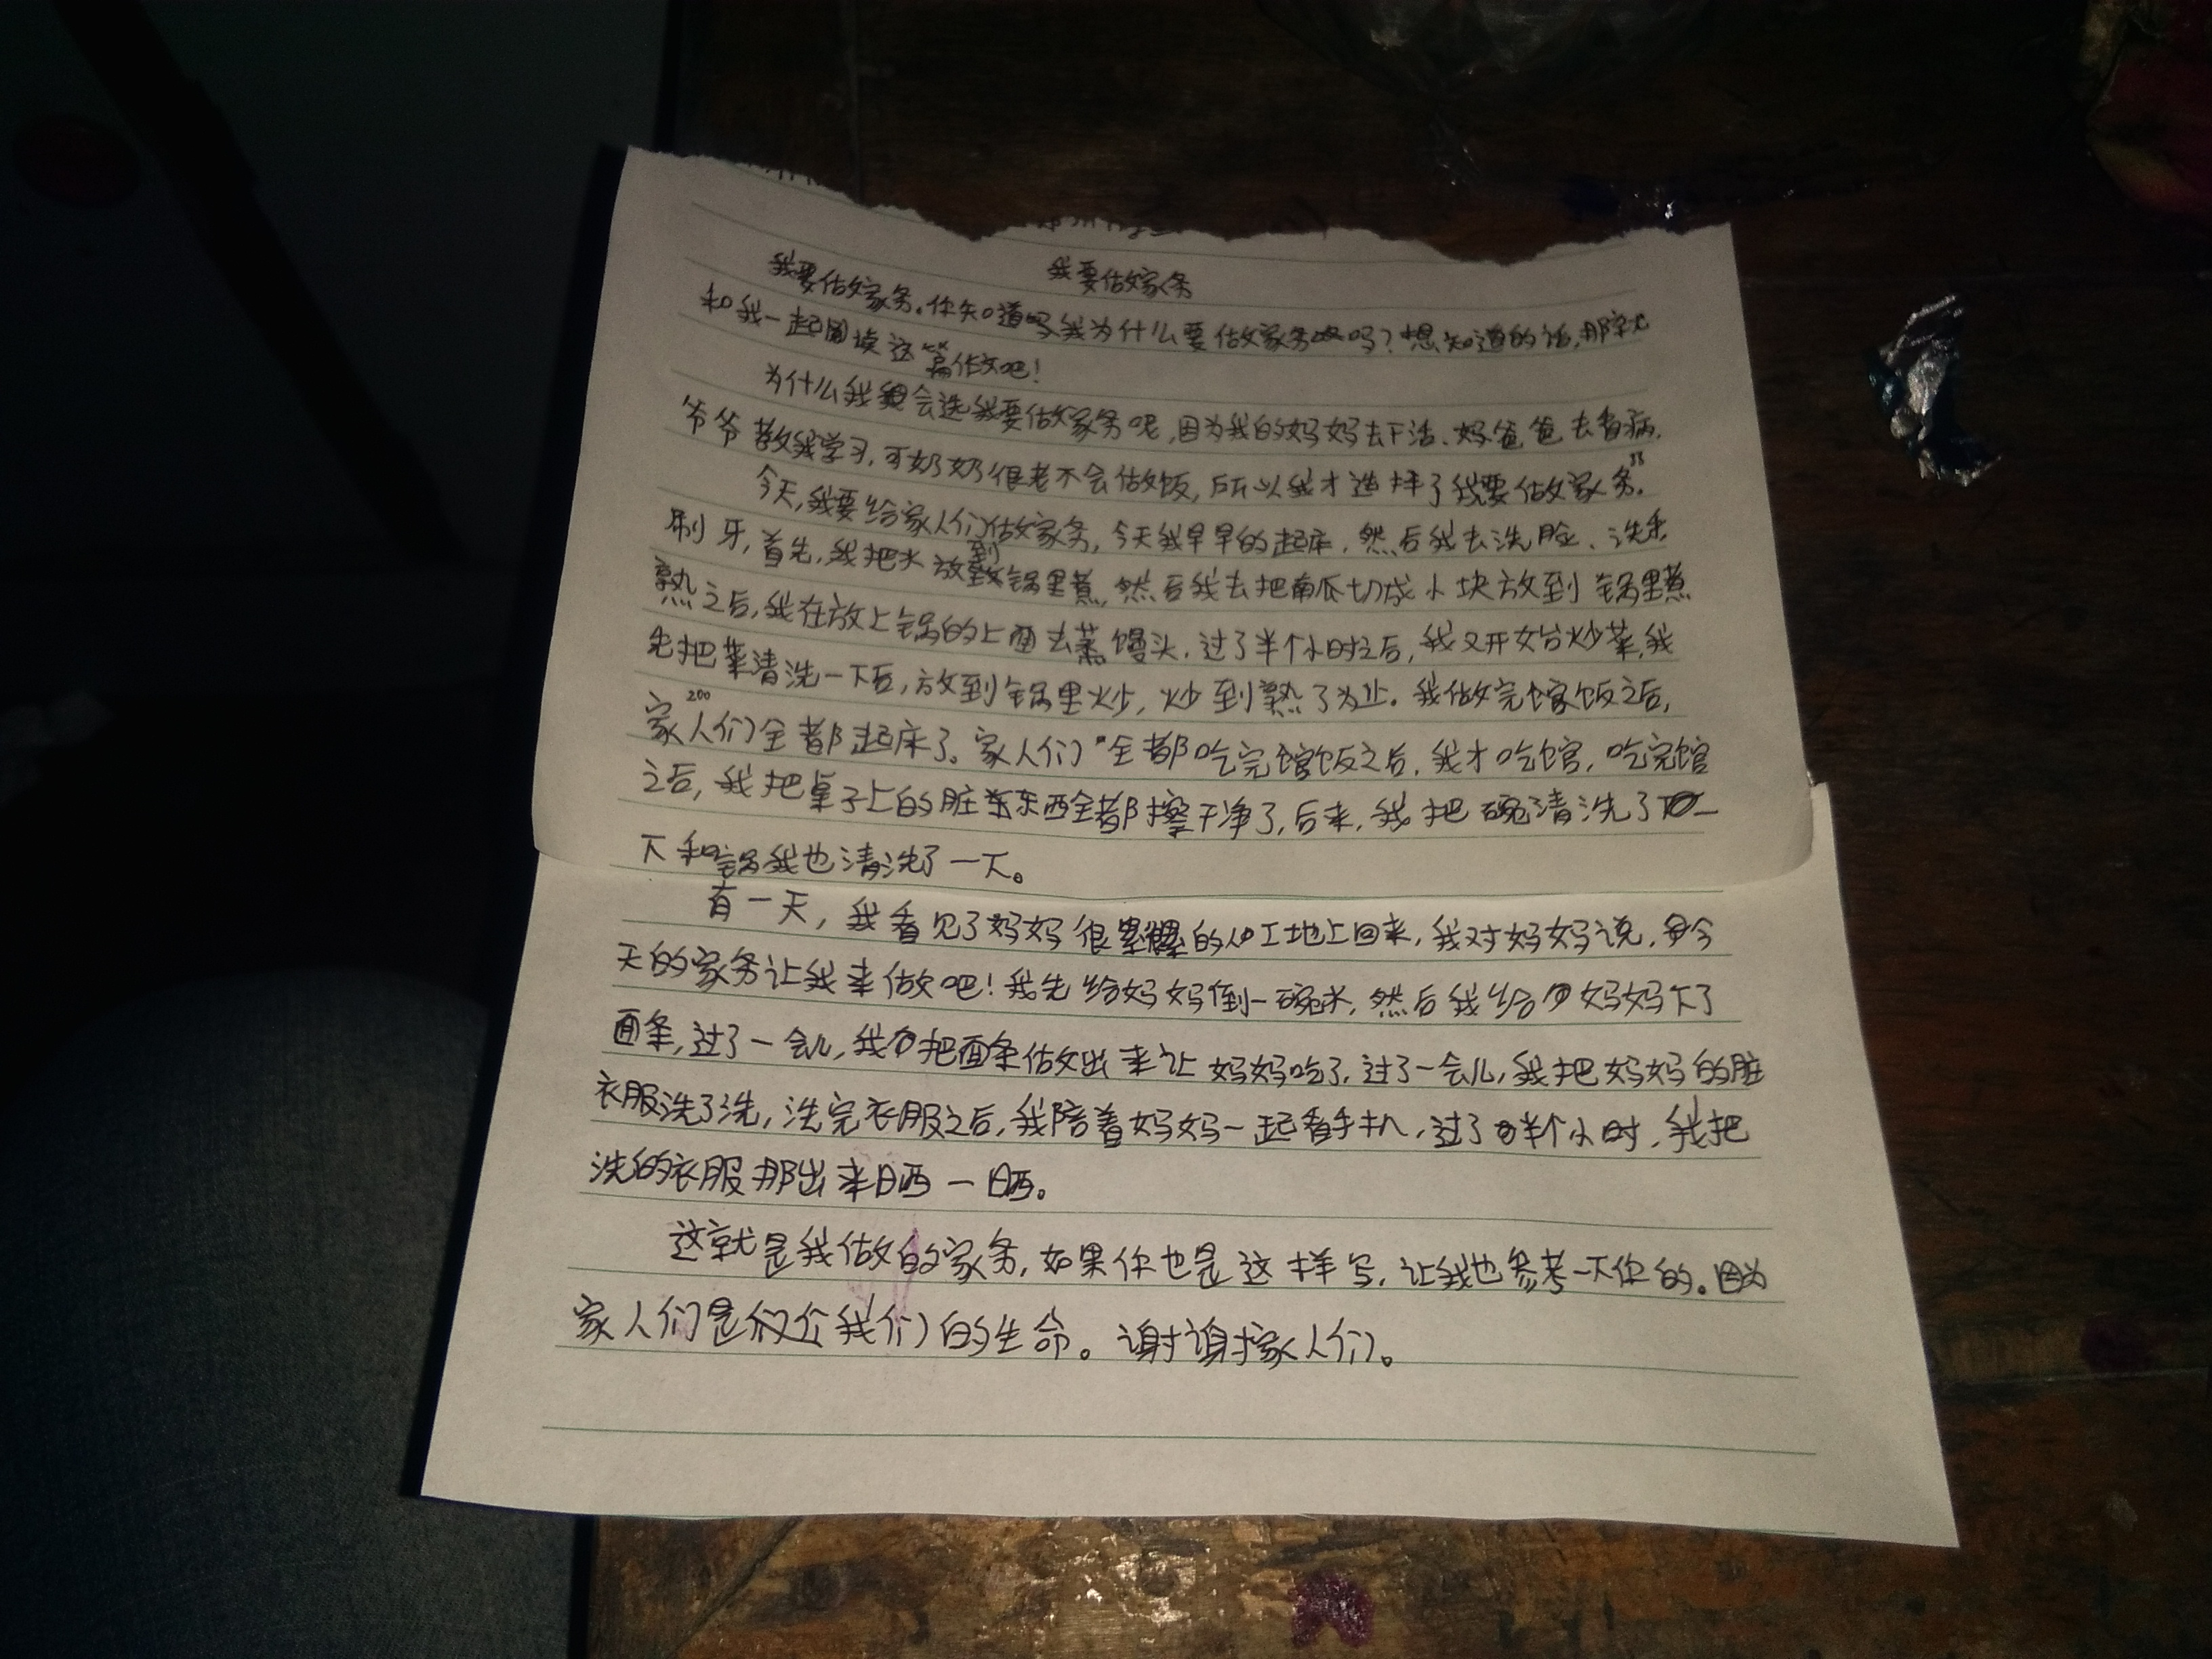 我要做家务
我要做家务。你知道吗我为什么要做家务吗？想知道的话，那就
和我一起阅读这篇作文吧！
为什么我会选我要做家务呢，因为我的妈妈去下活、爸爸去看病，
爷爷教我学习，可奶奶很老不会做饭，所以我才选择了我要做家务"。
今天，我要给家人们做家务，今天我早早的起床，然后我去洗脸、洗手
刷牙，首先，我把水放到锅里煮，然后我去把南瓜切成小块放到锅里煮
熟之后，我在放上锅的上面去蒸馒头，过了半个小时之后，我又开始炒菜，我
先把菜清洗一下后，放到锅里炒，炒到熟了为止。我做完饭之后，
家人们全都起床了。家人们全都吃完饭之后，我才吃馆，吃完馆
之后，我把桌子上的脏东西全都擦干净了，后来，我把碗清洗了一
下和锅我也清洗了一下。
200
有一天，我看见了妈妈很累的从工地上回来，我对妈妈说，今
天的家务让我来做吧！我先给妈妈倒一碗水，然后我给妈妈下了
面条，过了一会儿，我把面条做出来让妈妈吃了，过了一会儿，我把妈妈的脏
衣服洗了洗，洗完衣服之后，我陪着妈妈一起看手机，过了半个小时，我把
洗的衣服那出来晒一晒。
这就是我做的家务，如果你也是这样写，让我也参考一下你的。因为
家人们是我们的生命。谢谢家人们。